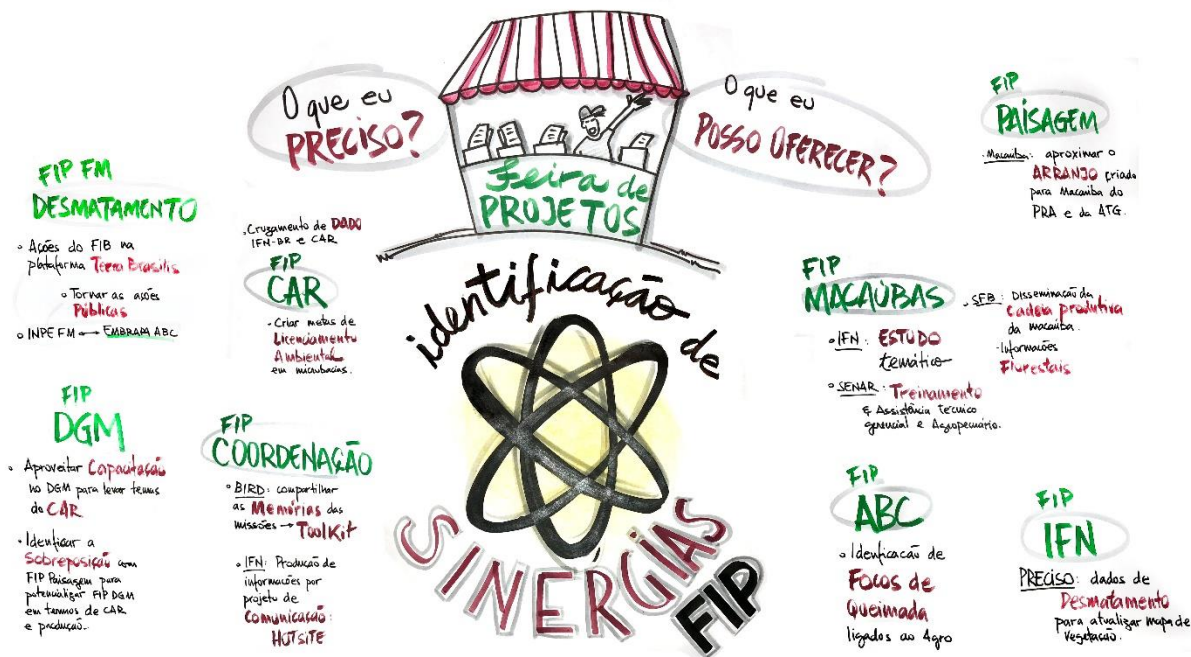 O que eu
PRECISO?
O que eu
POSSO OFERECER?
Feira de
PROJETOS
identificação de
SINERGIAS
FIP
FIP FM
DESMATAMENTO
Ações do FIB na
plataforma Terra Brasilis
Tornar as ações
Públicas
INPE FM ↔ EMBRAPA ABC
Cruzamento de DADO
IFN-BR e CAR
FIP
CAR
Criar metas de
Licenciamento
Ambiental
em microbacias.
FIP
DGM
Aproveitar Capacitação
no DGM para levar temas
do CAR
Idenficar a
Sobreposição com
FIP Paisagem para
potencializar FIP DGM
em termos de CAR
e produção.
FIP
COORDENAÇÃO
BIRD: compartilhar
as Memórias das
missões → ToolKit
IFN: Produção de
informações por
projeto de
Comunicação:
HOTSITE
FIP
PAISAGEM
Macaúba: aproximar o
ARRANJO criado
para Macaúba do
PRA e da ATG.
FIP
MACAÚBAS
IFN: ESTUDO
temático
SENAR: Treinamento
& Assistência técnico
gerencial e Agropecuário.
SFB: Disseminação da
Cadeia produtiva
da macaúba.
Informações
Florestais
FIP
ABC
Idenficacão de
Focos de
Queimada
ligados ao Agro
FIP
IFN
PRECISO: dados de
Desmatamento
para atualizar mapa de
Vegetação.